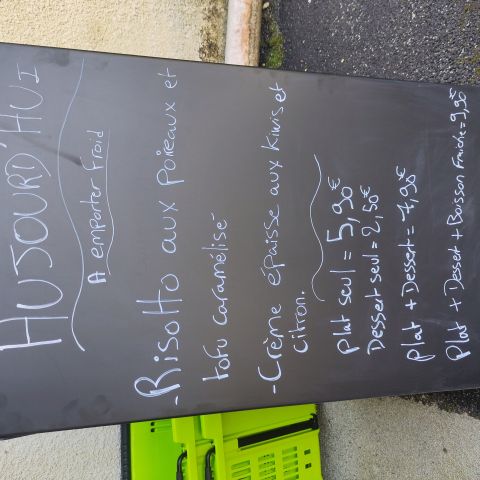 AUJOURD'HUI
A emporter Froid
- Risotto aux poireaux et
tofu caramélisé
- Crème épaisse aux kiwis et
citron.
Plat seul = 5,90€
Dessert seul = 2,50€
Plat + Dessert = 7,90€
Plat + Dessert + Boisson Fraîche = 9,90€